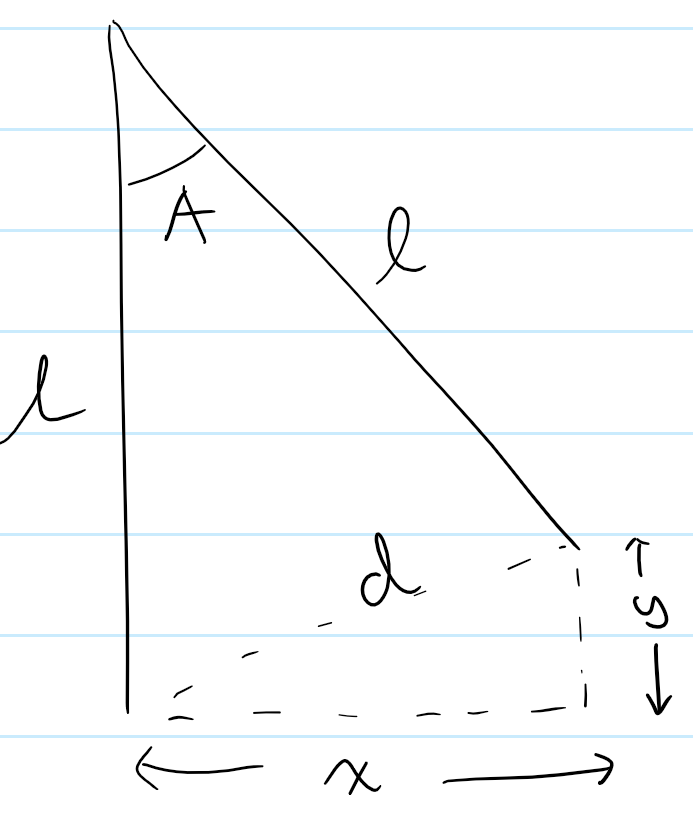 A
l
l
d
y
x